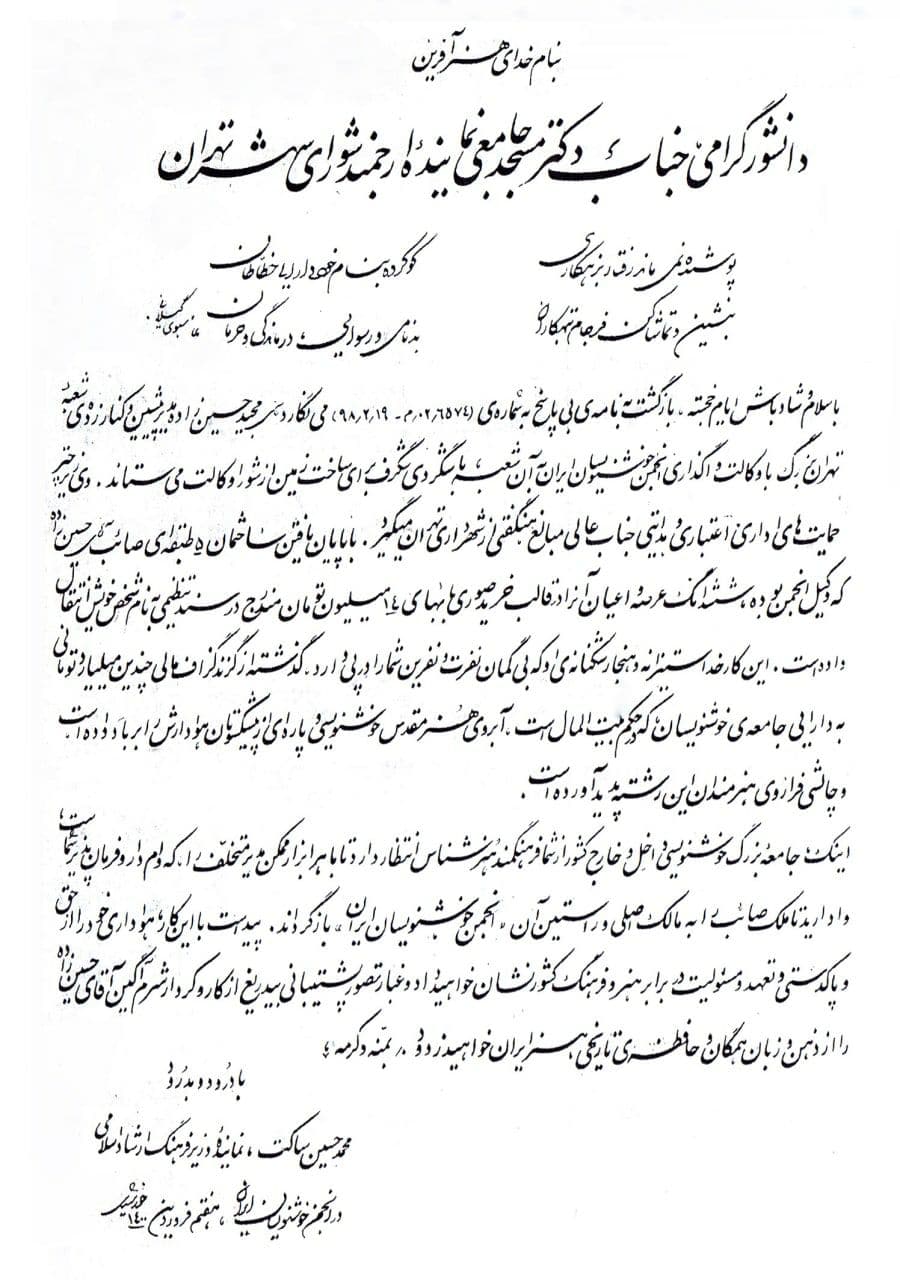 بنام خدای هنر آفرین
دانشور گرامی جناب دکتر مسجد جامعی نماینده ارجمند شورای شهر تهران
پوشنده نمی ماند رفتار بزهکاری گو کرده بنام خود دارایی خطاطان
بنشین و تماشا کن فرجام تبهکاران بدنامی و رسوایی، درماندگی و حرمان
با سلام و شادباش ایام خجسته. بازگشت به نامه‌ی بی پاسخ به شماره‌ی (۰۲٫۶۵۷۴/م - ۹۸٫۲٫۱۹) می نگارد: مجید حسین زاده مدیر پیشین و کنار زده‌ی شعبه
تهران بزرگ با وکالت واگذاری انجمن خوشنویسان ایران به آن شعبه، با شگردی شگرف برای ساخت زمین از شورا وکالت می ستاند. وی زیر چتر
حمایت های اداری، اعتباری و مدیریتی جناب عالی مبالغ هنگفتی از شهرداری تهران میگیرد. با پایان یافتن ساختمان ۵ طبقه‌ای صائب، آقای حسین زاده
که وکیل انجمن بوده، ششدانگ عرصه و اعیان آنرا در قالب خرید صوری با بهای ۱۴ میلیون تومان مندرج در سند تنظیمی به نام شخص خویش انتقال
داده است. این کار خداستیزانه و هنجارشکنانه‌ی او که بی گمان نفرت و نفرین شما را در پی دارد. گذشته از گزند گزاف مالی چندین میلیارد تومانی
به دارایی جامعه‌ی خوشنویسان که در حکم بیت المال است، آبروی هنر مقدس خوشنویسی و پاره‌ای از پیشکسوتان هوادارش را بر باد داده است
و چالشی فراروی هنرمندان این رشته پدید آورده است.
اینک جامعه بزرگ خوشنویسی داخل و خارج کشور از شما فرهنگمند هنرشناس انتظار دارد تا با هر ابزار ممکن مدیر متخلف را، که وام دار و فرمان پذیر شماست،
وادارید تا ملک صائب را به مالک اصلی و راستین آن «انجمن خوشنویسان ایران» بازگرداند. پیداست با این کار، هواداری خود را از حق
و پاکدستی و تعهد و مسئولیت در برابر هنر و فرهنگ کشور نشان خواهید داد و غبار تصور پشتیبانی بیدریغ از کار و کردار شرم آگین آقای حسین زاده
را از ذهن و زبان همگان و حافظه‌ی تاریخی هنر ایران خواهید زدود. بمنه و کرمه؛
با درود و بدرود
محمد حسین ساکت، نماینده وزیر فرهنگ و ارشاد اسلامی
در انجمن خوشنویسان ایران، هفتم فروردین ۱۴۰۰ خورشیدی